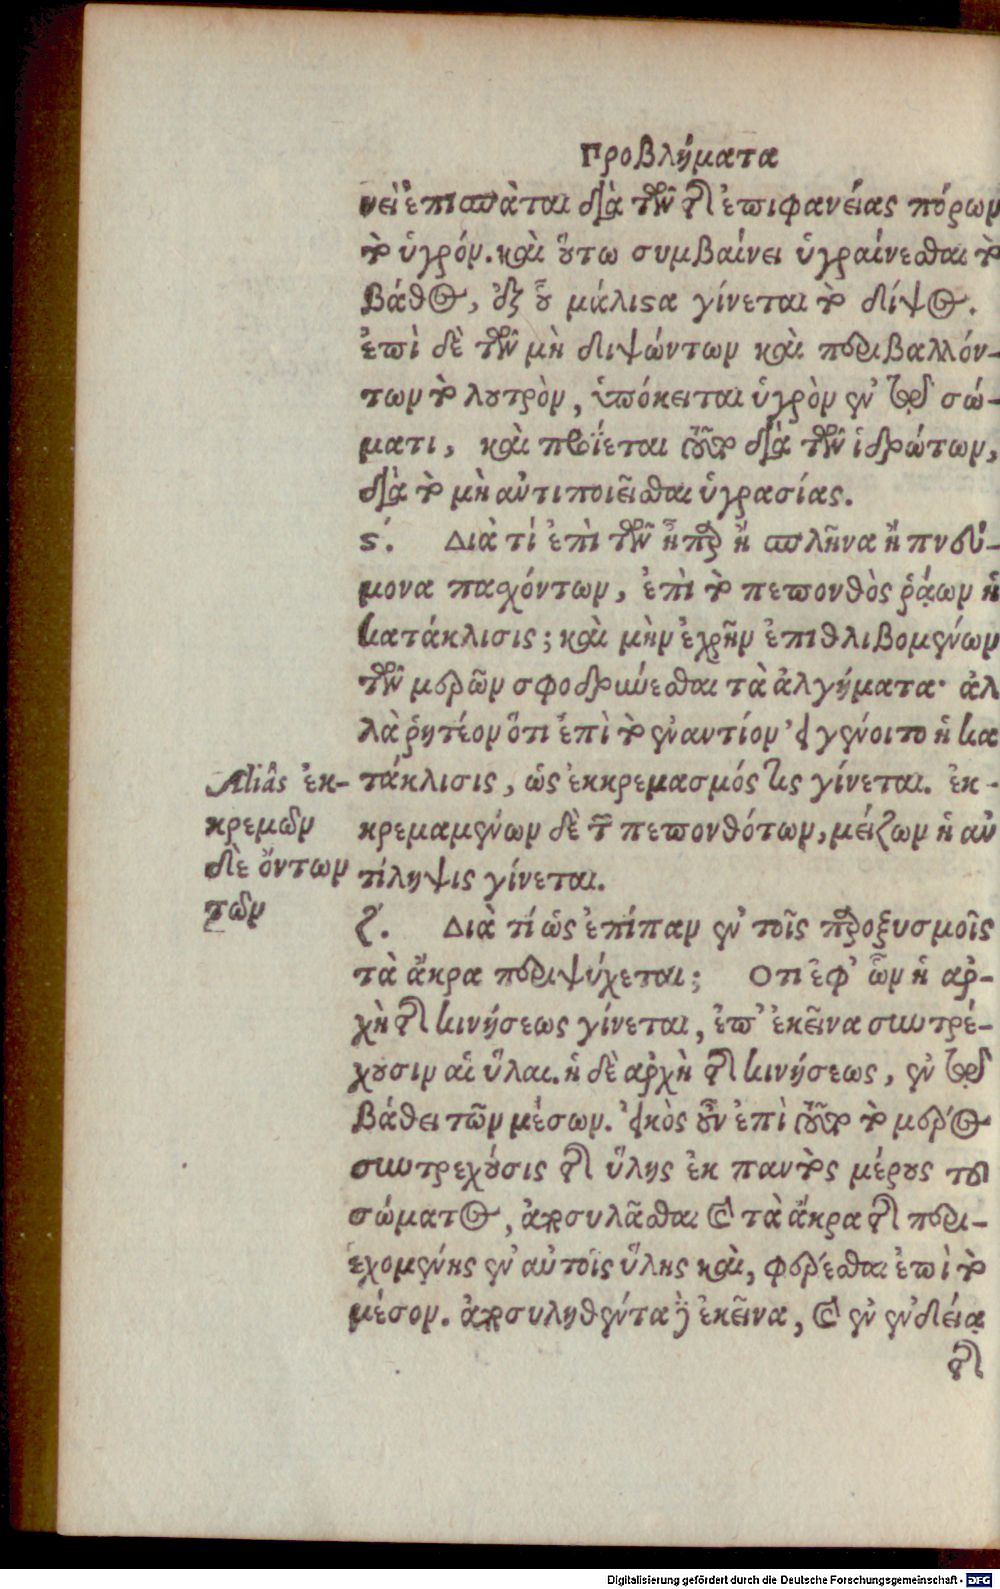 Προβλήματα
νει ἐπισπᾶται διὰ τῶν τῆς ἐπιφανείας πόρων
τὸ ὑγρόν. καὶ οὕτω συμβαίνει ὑγραίνεσθαι τὸ
βάθος, ἐξ οὗ μάλιστα γίνεται τὸ δίψος.
ἐπὶ δὲ τῶν μὴ διψώντων καὶ περιβαλλόν-
των τὸ λουτρὸν, ὑπόκειται ὑγρὸν ἐν τῷ σώ-
ματι, καὶ ποιεῖται τοῦτο διὰ τῶν ἱδρώτων,
διὰ τὸ μὴ ἀντιποιεῖσθαι ὑγρασίας.
ϛ΄. Διὰ τί ἐπὶ τῶν ἧπαρ ἢ σπλῆνα ἢ πνεύ-
μονα πασχόντων, ἐπὶ τὸ πεπονθὸς ῥᾴων ἡ
κατάκλισις; καὶ μὴν ἐχρῆν ἐπιθλιβομένων
τῶν μερῶν σφοδρύνεσθαι τὰ ἀλγήματα· ἀλ
λὰ ῥητέον ὅτι ἐπὶ τὸ ἐναντίον εἰ γένοιτο ἡ κα
τάκλισις, ὡς ἐκκρεμασμός τις γίνεται. ἐκ-
κρεμαμένων δὲ τῶν πεπονθότων, μείζων ἡ ἀν
τίληψις γίνεται.
Aliâs ἐκ-
κρεμῶν
δὲ ὄντων
τῶν
ζ΄. Διὰ τί ὡς ἐπίπαν ἐν τοῖς παροξυσμοῖς
τὰ ἄκρα περιψύχεται; Οτι ἐφ' ὧν ἡ ἀρ-
χὴ τῆς κινήσεως γίνεται, ἐπ' ἐκεῖνα συντρέ-
χουσιν αἱ ὕλαι. ἡ δὲ ἀρχὴ τῆς κινήσεως, ἐν τῷ
βάθει τῶν μέσων. εἰκὸς οὖν ἐπὶ τοῦτο τὸ μέρος
συντρεχούσης τῆς ὕλης ἐκ παντὸς μέρους τοῦ
σώματος, ἀποσυλᾶσθαι καὶ τὰ ἄκρα τῆς περι-
εχομένης ἐν αὐτοῖς ὕλης καὶ, φέρεσθαι ἐπὶ τὸ
μέσον. ἀποσυληθέντα γὰρ ἐκεῖνα, καὶ ἐν ἐνδείᾳ
τῆς